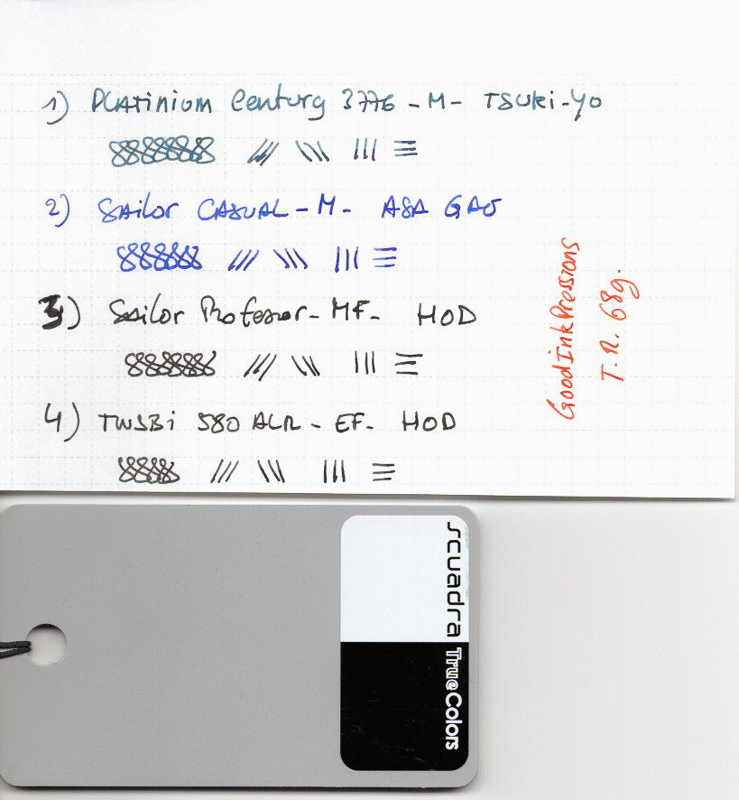 1) PLAtinium Century 3776 - M - TSUki-YO
2) SAilor CASUAL - M - ASA GAO
3) Sailor Profesor - MF - HOD
4) TWSBi 580 ALR - EF - HOD
GoodInkPressions
T.R. 68g.
scuadra TrueColors